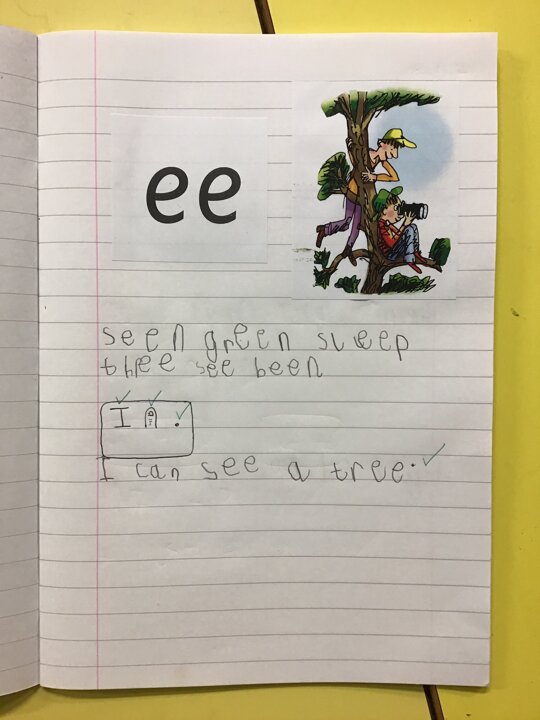 ee
seen green sleep
thee see been
I .
I can see a tree.